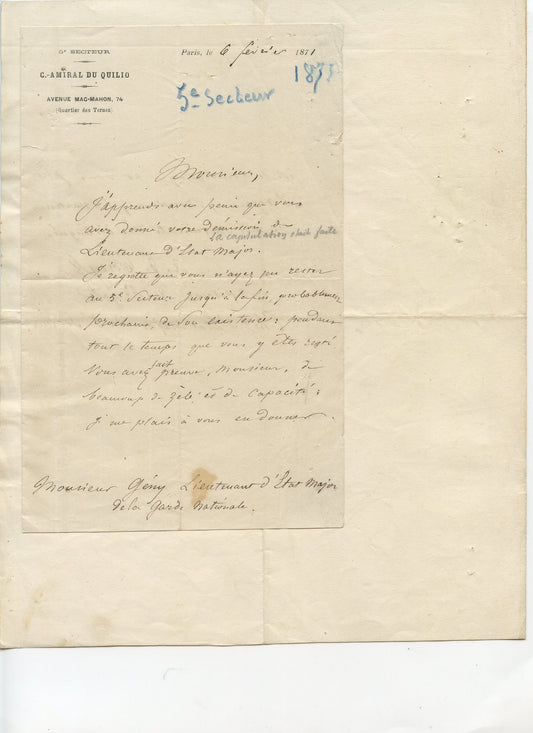 5e SECTEUR
C.-AMIRAL DU QUILIO
AVENUE MAC-MAHON, 74
(Quartier des Ternes)
Paris, le 6 février 1871
1871
5e Secteur
Monsieur,
J'apprends avec peine que vous
avez donné votre démission de
la capitulation était faite
Lieutenant d'Etat Major.
Je regrette que vous n'ayez pu rester
au 5e Secteur jusqu'à la fin, probablement
prochaine, de son existence; pendant
tout le temps que vous y êtes resté
Vous avez fait preuve, Monsieur, de
beaucoup de zèle et de capacité;
je me plais à vous en donner
Monsieur Gény Lieutenant d'Etat Major
de la Garde Nationale.